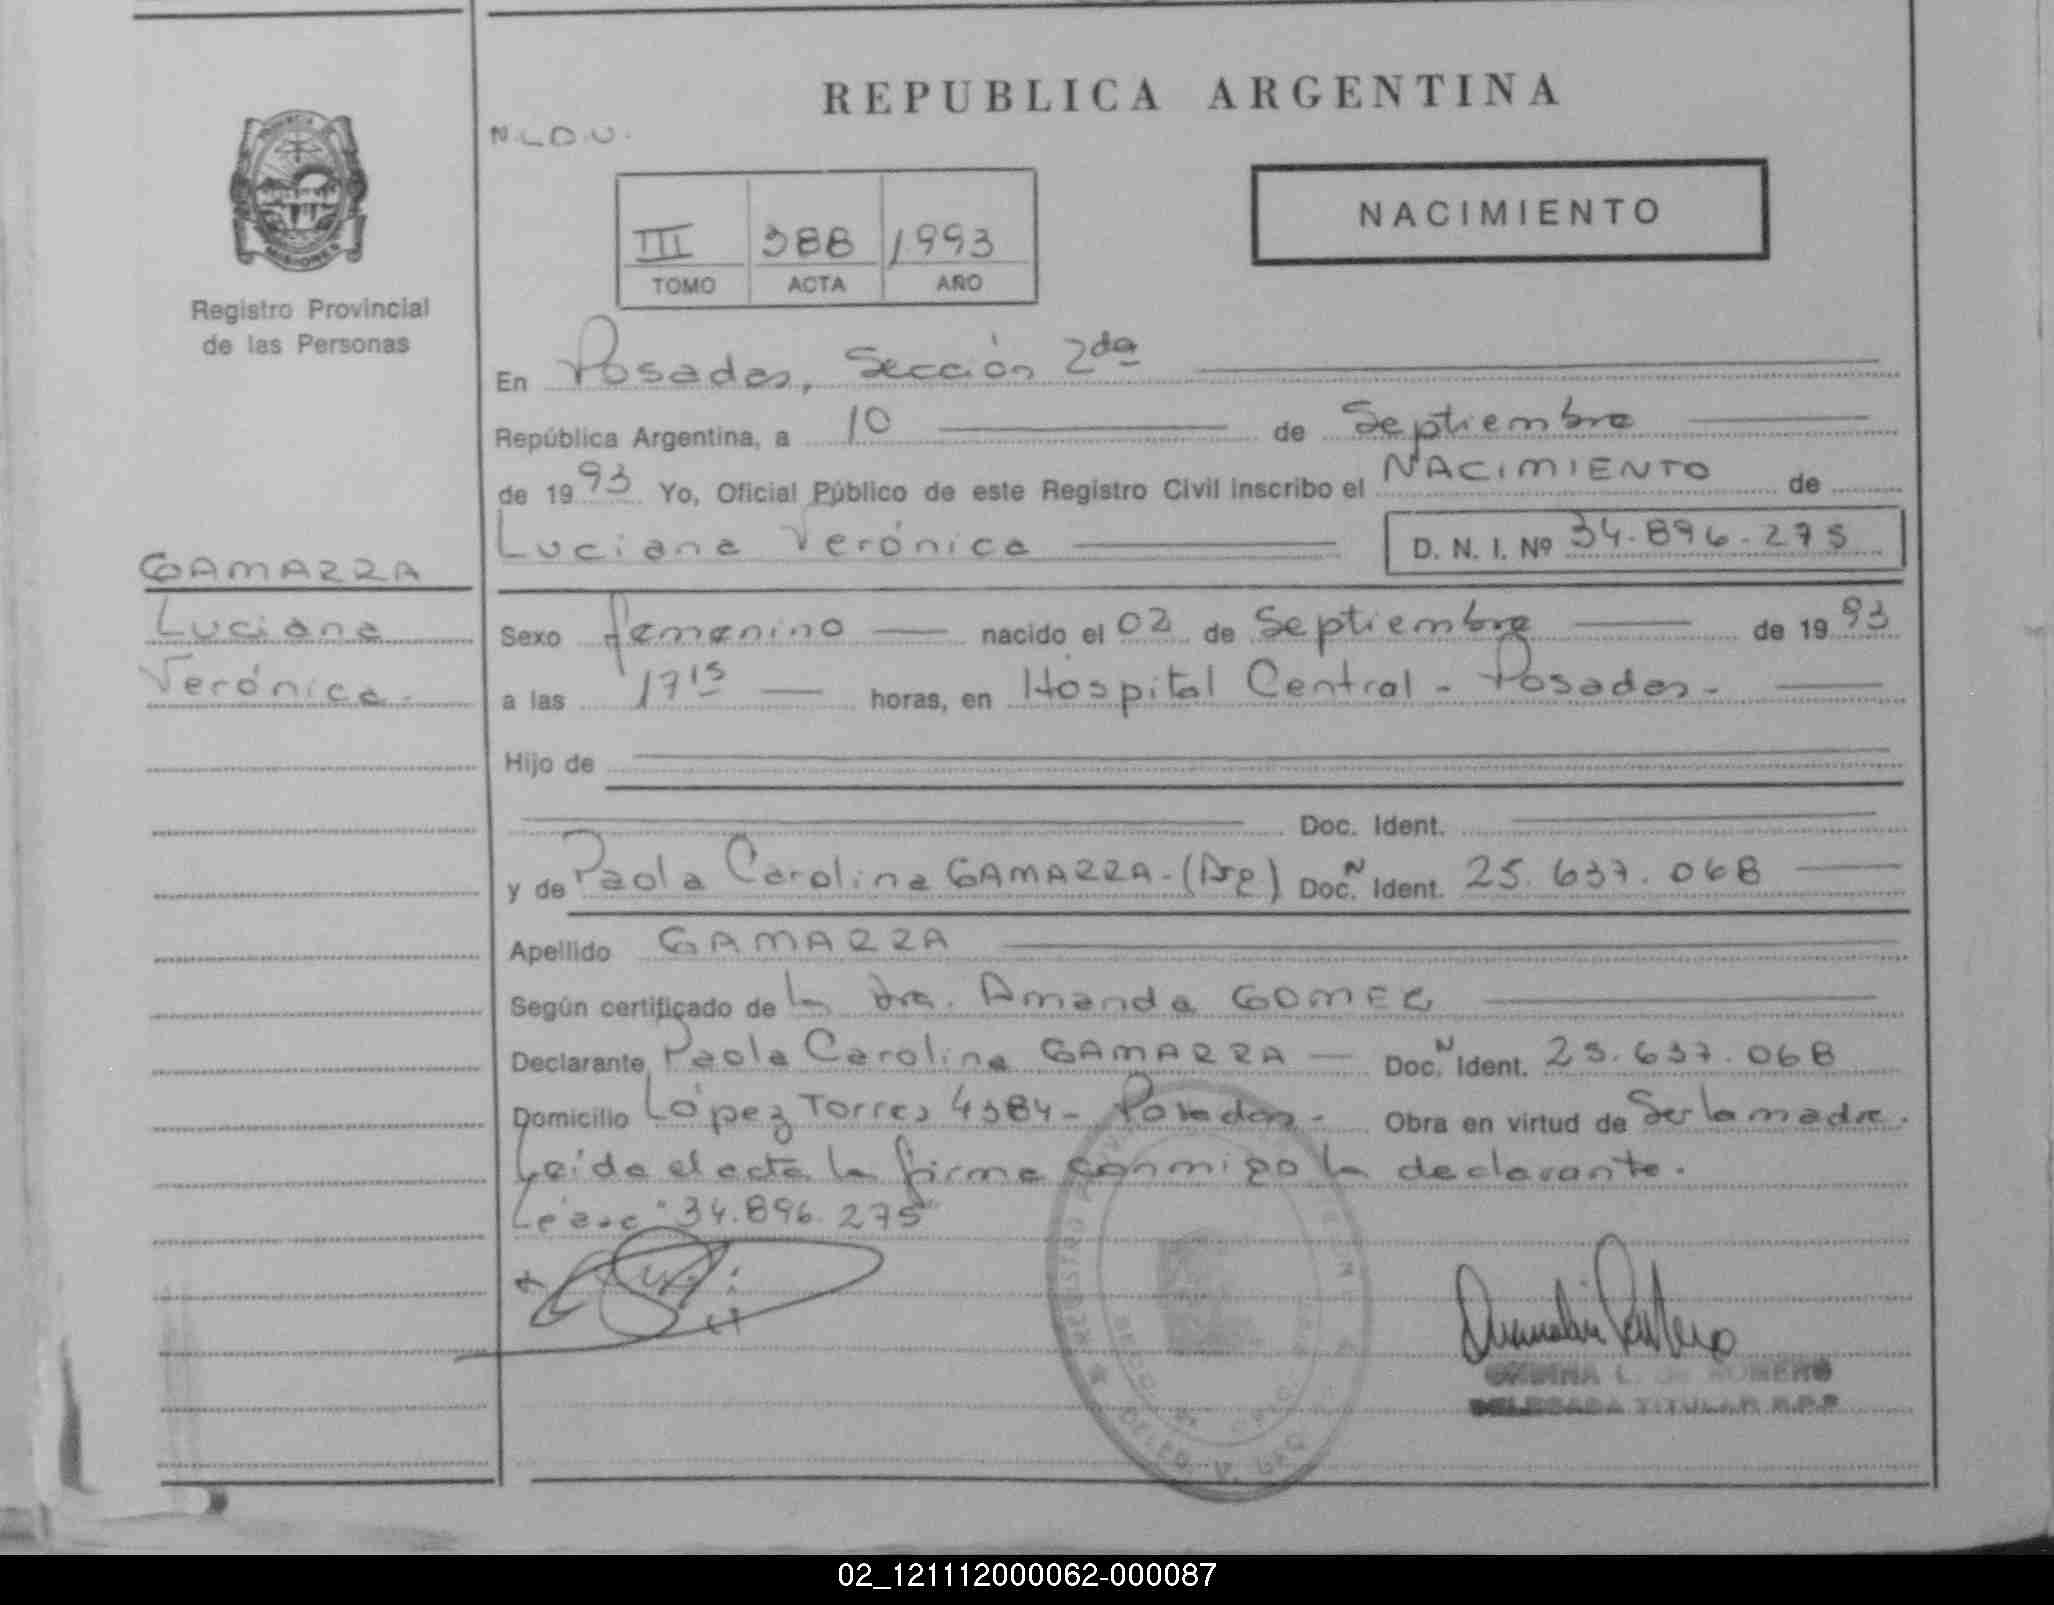 REPUBLICA ARGENTINA
N.L.D.U.
NACIMIENTO
III 388 1993
TOMO ACTA AÑO
MISIONES
Registro Provincial
de las Personas
En Posadas, Sección 2da
República Argentina, a 10 de Septiembre
de 1993 Yo, Oficial Público de este Registro Civil inscribo el NACIMIENTO de
Luciana Verónica D. N. I. Nº 34.896.275
GAMARRA
Luciana
Verónica.
Sexo femenino nacido el 02 de Septiembre de 1993
a las 17 15 horas, en Hospital Central - Posadas -
Hijo de
Doc. Ident.
y de Paola Carolina GAMARRA - (Arg) Doc. N Ident. 25.637.068
Apellido GAMARRA
Según certificado de la Dra. Amanda GOMEZ
Declarante Paola Carolina GAMARRA Doc. N Ident. 25.637.068
Domicilio López Torres 4384 - Posadas - Obra en virtud de Ser la madre.
Leída el acta la firma conmigo la declarante.
Léase "34.896.275"
REGISTRO
L. de ROMERO
DELEGADA TITULAR R.P.P.
02_121112000062-000087